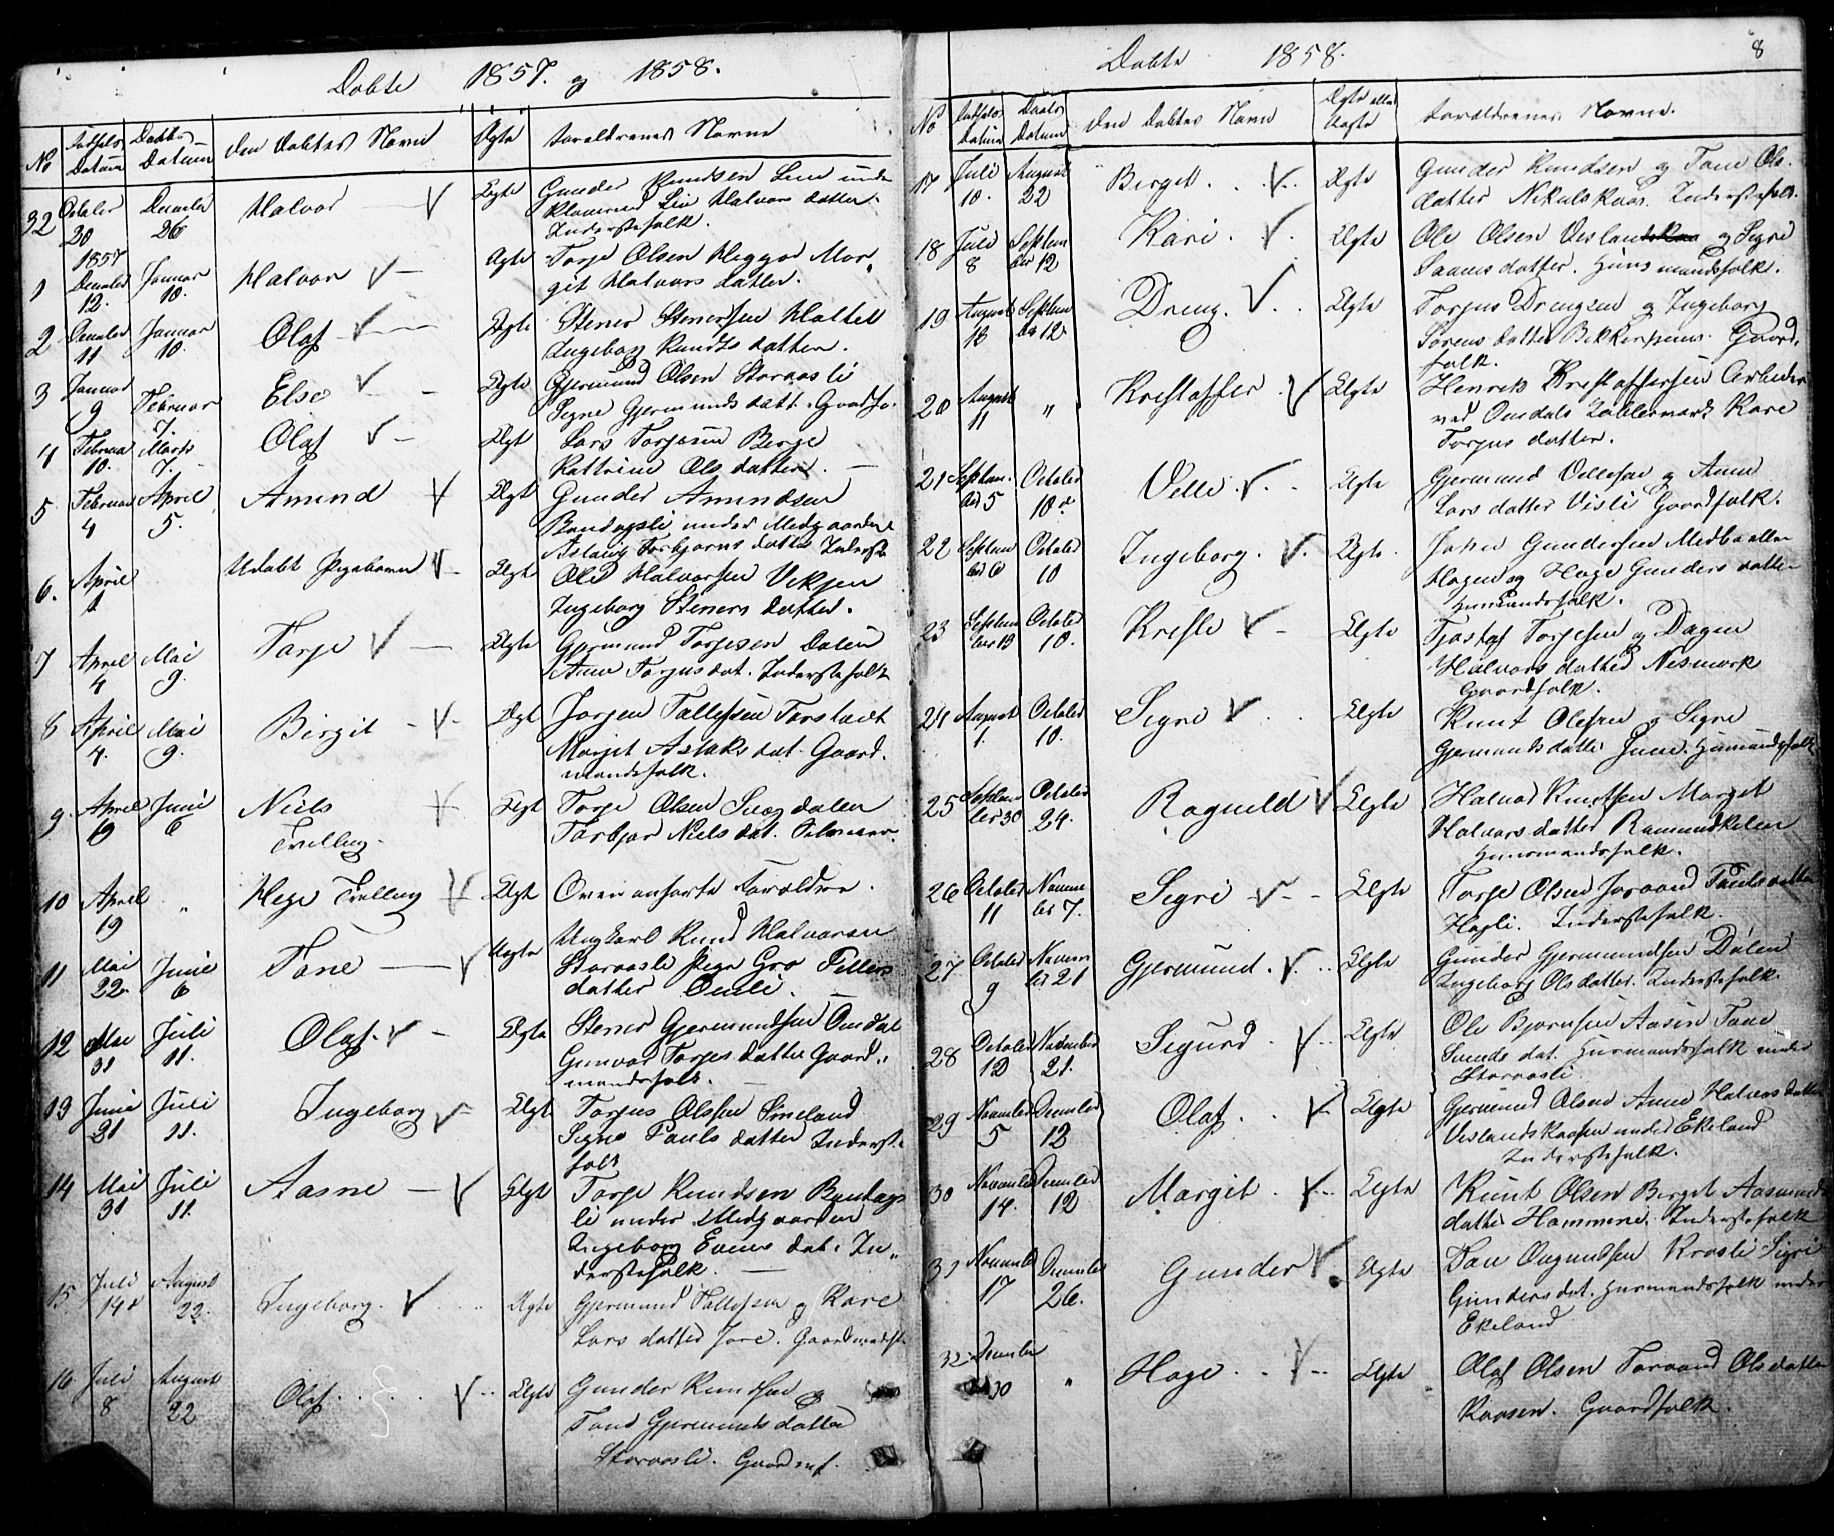 Døbte 1857. og 1858.
No Fødsels Datum Daabs Datum den Døbtes Navn Ægte Foreldrenes Navne
32 October 20 December 26 Halvor Ægte Gunder Knudsen under
Halvors datter.
Inderstefolk.
1857
1 December 12. Januar 10. Halvor Ægte Torje Olsen Heggo Mar-
git Halvors datter.
2 December 11 Januar 10. Olaf Ægte Stener Stenersen
Ingeborg Knudts datter.
3 Januar 9 Februar 7. Else Ægte Gjermund Olsen Storaasli
Signe Gjermunds datt. Gaardfo.
4 Februar 10. Marts 7. Olaf Ægte Lars Torjesen Berge
Kattrine Ols datter.
5 Februar 4 April 5. Amund Ægte Gunder Amundsen
Bondagsli under Midgaarden
Aslaug Torbjørns datter Inderste
6. April 1 Udøbt Pigebarn Ægte Ole Halvorsen Veksen
Ingeborg Steners datter.
7 April 4 Mai 9. Torje Ægte Gjermund Torjesen Dalen
Anne Torjus dat. Inderstefolk
8 April 4. Mai 9. Birgit Ægte Jørgen Tallefsen Torstvedt
Margit Aslaks dat. Gaard.
mandsfolk.
9. April 19 Juni 6 Niels Tvilling. Ægte Torje Olsen Sugdalen
Torbjør Niels dat. Selveier.
10 April 19 " Hege Tvilling Ægte Oven anførte Foreldre.
11 Mai 22 Junie 6 Tone Uegte Ungkarl Knud Halvorsen
Storaasli Pige Gro Tellefs
datter Omli.
12 Mai 31 Juli 11. Olaf. Ægte Stener Gjermundsen Omdal
Gunvor Torjus datter Gaard„
mandsfolk.
13 Junie 21 Juli 11. Ingeborg Ægte Torjus Olssen Smeland
Signe Pauls datter Inderste
folk
14 Mai 31 Juli 11. Aasne Ægte Torje Knudsen Bondags
li under Midgaarden
Ingeborg Evens dat. In„
derstefolk.
15 Juli 14 August 22. Ingeborg. Ægte Gjermund Tallefsen og Kare
Lars datter Jore. Gaardmandsfo
16 Juli 8 August 22 Olaf. Ægte Gunder Knudsen og
Tone Gjermunds datter
Storaasli. Gaardmf.
Døbte 1858. 8
No Fødsels Datum Daabs Datum den Døbtes Navn Ægte eller Uægte Foreldrenes Navne.
17 Juli 10. August 22 Birgit. Ægte Gunder Knudsen og Tone Ols.
datter Nikulskaas. Inderstefolk.
18 Juli 8 Septem ber 12 Kari. Ægte Ole Olsen Vesland og Sigri
datter. Husmandsfolk.
19 August 18 Septem ber 12 Dreng. Ægte Torjus Drengsen og Ingeborg
Sørens datter Gaard.
folk.
20 August 11 " Krestoffer Ægte Henrik Krestoffersen Arbeider
ved Omdals Kare
Torjus datter.
21 Septem. ber 5 October 10 Velle. Ægte Gjermund Vellesen og Anne
Lars datter Visli Gaardfolk.
22 Septem ber 6 October 10 Ingeborg. Ægte John Gundersen
Hagen og Hage Gunders datter
Husmandsfolk.
23 Septem ber 13 October 10. Kresti Ægte Tjøstof Torjesen og Dagne
Halvors datter Nesmork
Gaardfolk.
24 August 1. October 10. Segri Ægte Knut Olessen og Segre
Gjermunds datter Husmandsfolk
25 Septem ber 30 October 24. Ragnild Ægte Halvor Knudtsen Marget
Halvors datter
Husmandsfolk.
26 October 11 Novem ber 7. Segri Ægte Torje Olsen Joraand Pauls datter
Hagli. Inderstefolk.
27 October 9 Novem ber 21 Gjermund. Ægte Gunder Gjermundsen Dalen
Ingeborg Olsdatter. Inderstefolk.
28 October 12 November 21. Segurd. Ægte Ole Bjørnsen Aasen Tone
Svends dat. Husmandsfolk under
Storaasli.
29 November 5 December 12 Olaf. Ægte Gjermund Olsen Anne Halvors datter
Veslandskaasen under Ekeland
Inderstefolk.
30 November 14. December 12 Margit. Ægte Knut Olsen Birget Aasmunds
datter Hommene. Inderstefolk
31 November 17 December 26. Gunder Ægte Ougundsen Kraasli Sigri
Gunders dat. Husmandsfolk under
Ekeland
32 December 10 " Hage. Ægte Olaf Olsen Toraand Ols datter
Kaasen. Gaardfolk.